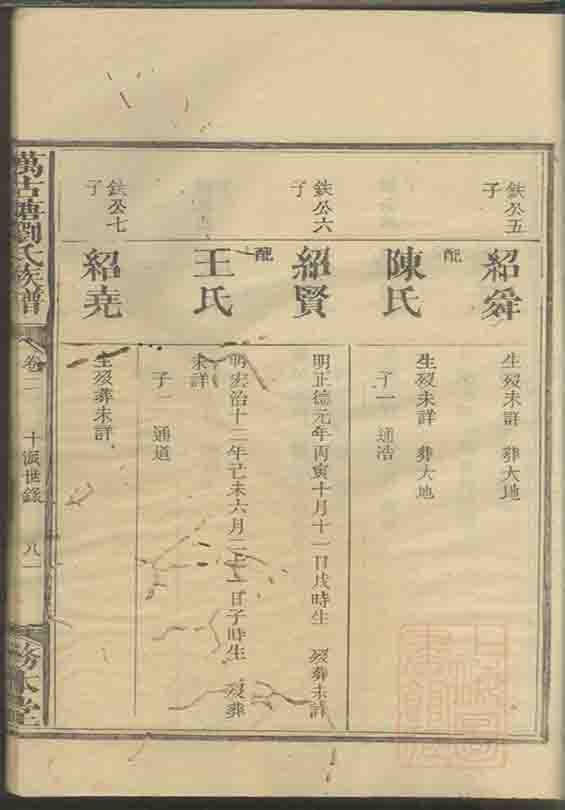 鉄公五
子
紹舜
生歿未詳 葬大地
配
陳氏
生歿未詳 葬大地
子一 通浩
鉄公六
子
紹賢
明正德元年丙寅十月十一日戌時生 歿葬未詳
配
王氏
明宏治十二年己未六月二十一日子時生 歿葬
未詳
子一 通道
鉄公七
子
紹堯
生歿葬未詳
萬古塘劉氏族譜
卷二
十派世錄
八一
務本堂